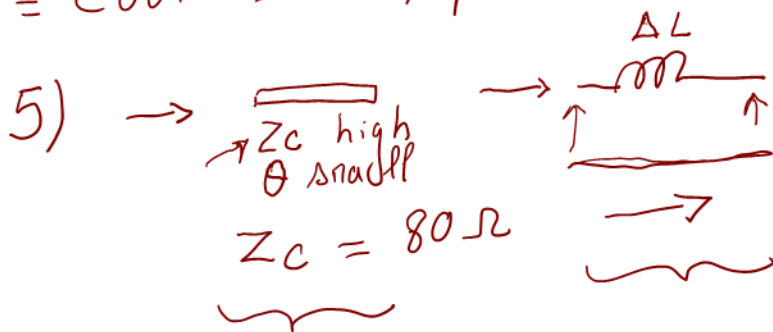 ΔL
5) → →
Zc high
θ small
Zc = 80 Ω